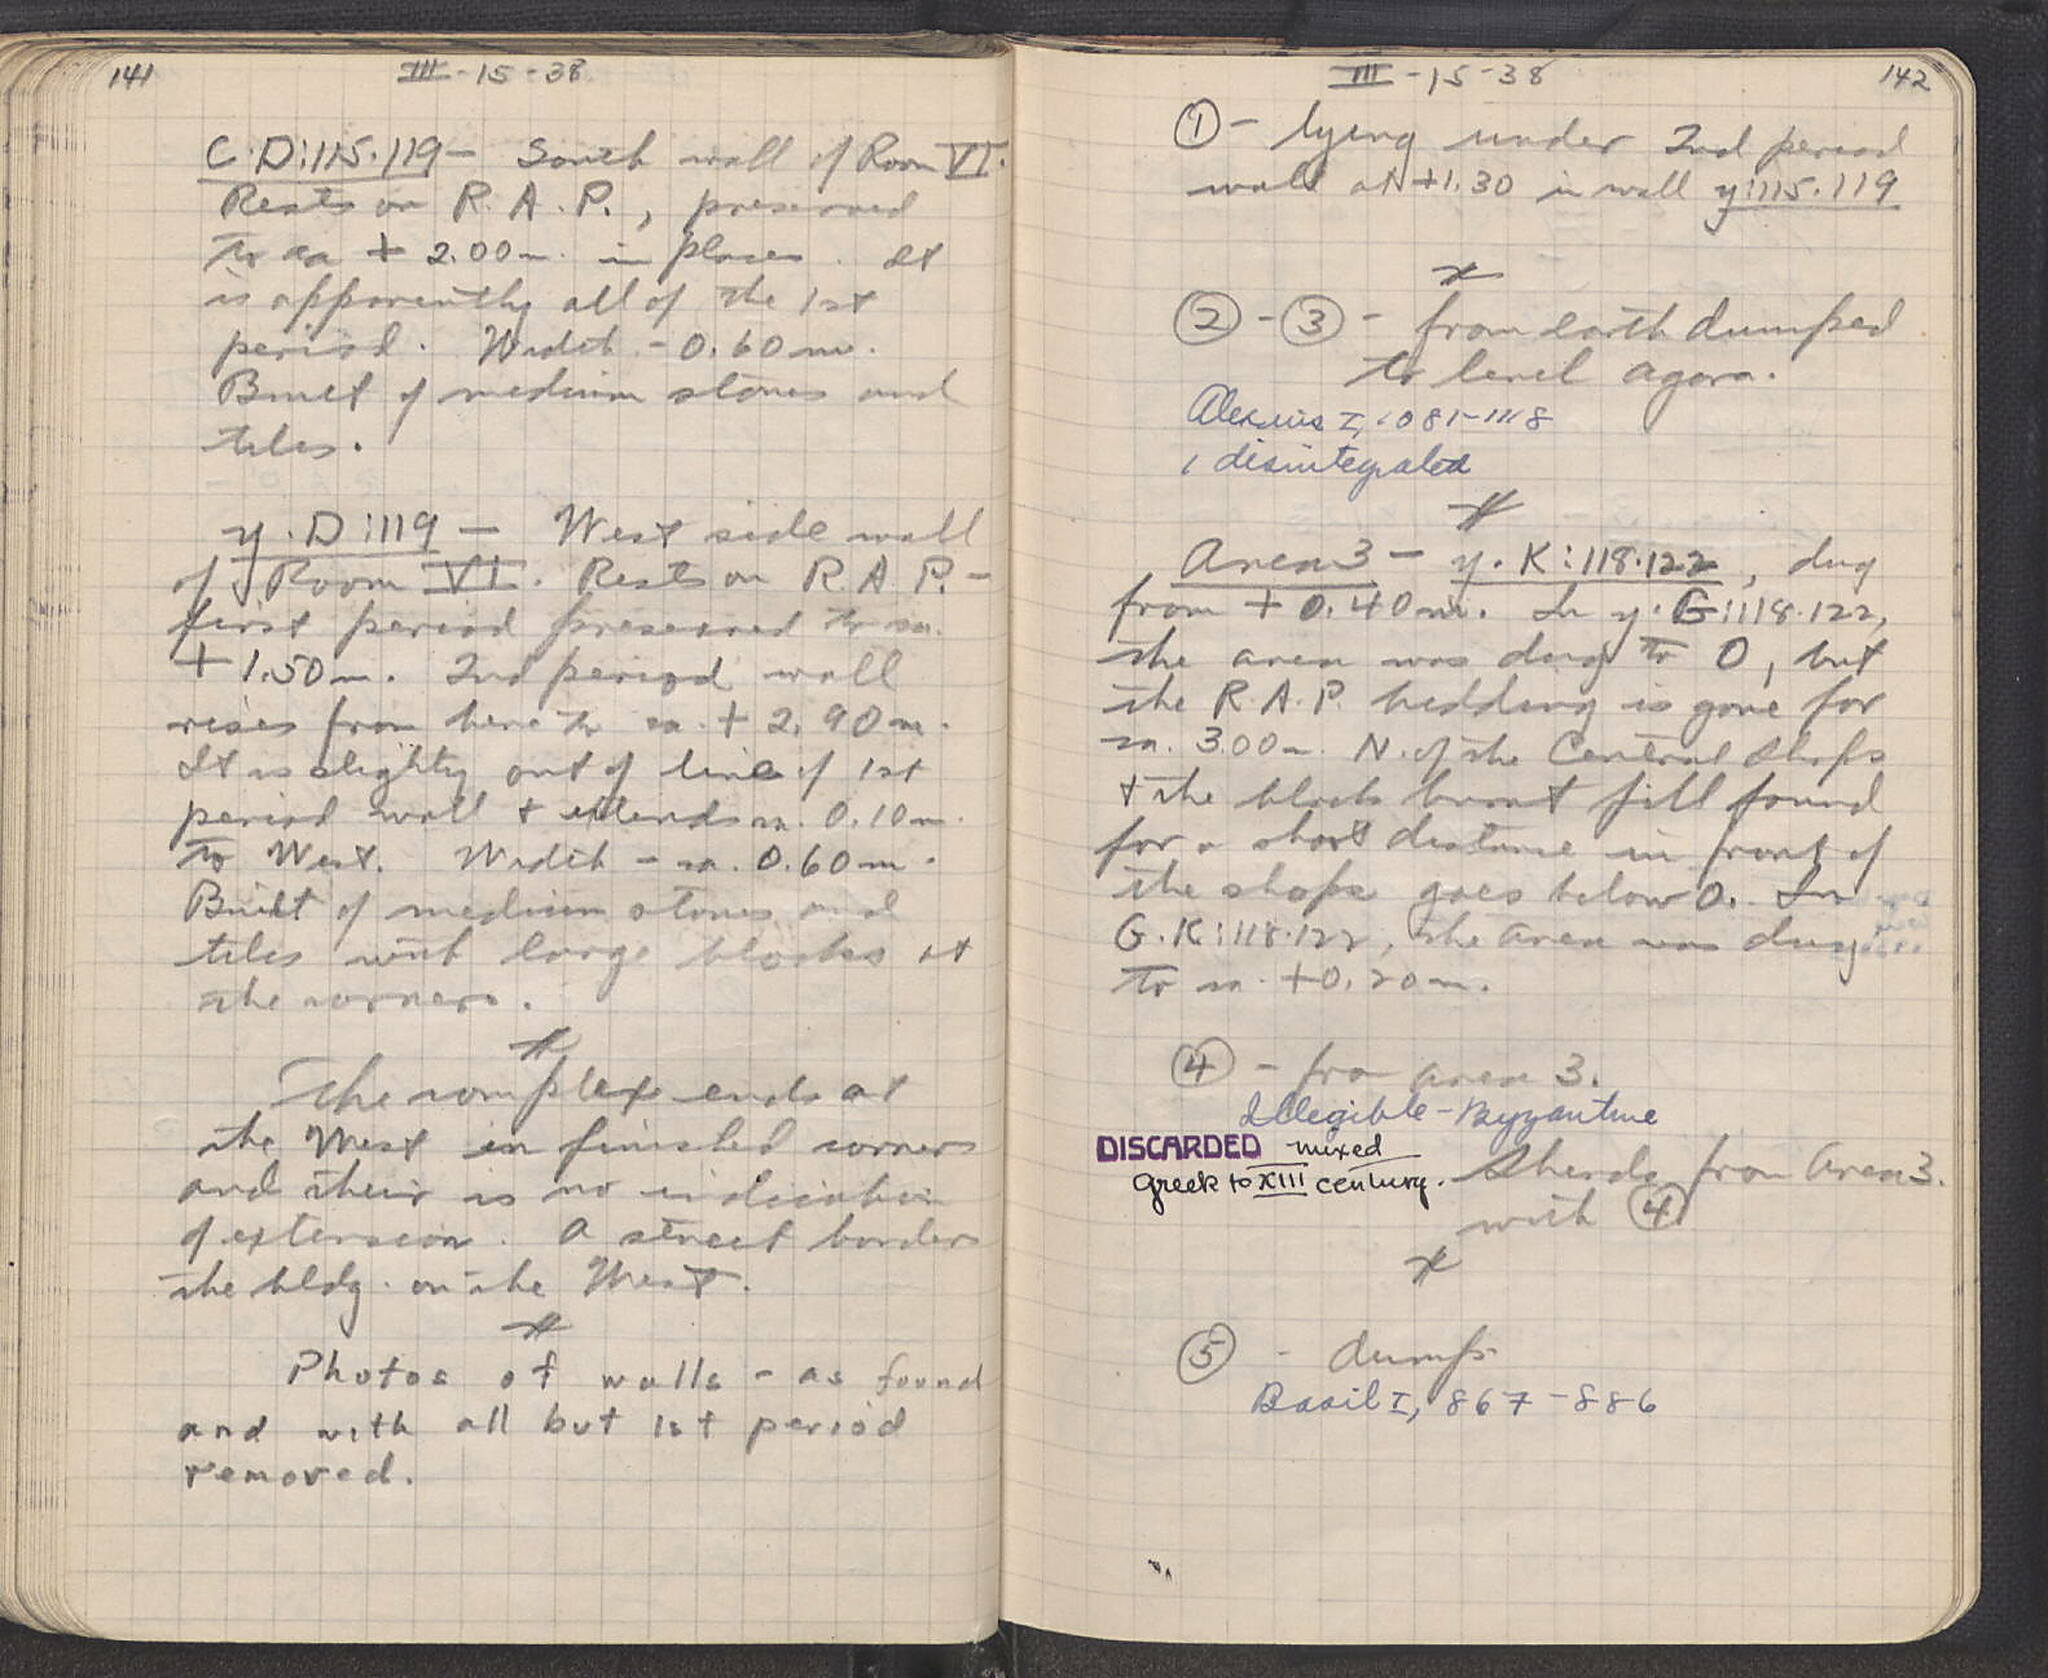 141
III - 15 - 38
C.D:115.119 - South wall of Room VI.
Rests on R.A.P., preserved
to ca + 2.00 m. in places. It
is apparently all of the 1st
period. Width - 0.60 m.
Built of medium stones and
tiles.
y.D:119 - West side wall
of Room VI. Rests on R.A.P. -
first period preserved to ca.
+ 1.50 m. 2nd period wall
rises from here to ca. + 2.90 m.
It is slighty out of line of 1st
period wall + extends ca. 0.10 m.
to West. Width - ca. 0.60 m.
Built of medium stones and
tiles with large blocks at
the corners.
The complex ends at
the West in finished corners
and their is no indication
of extension. A street borders
the bldg. on the West.
Photos of walls - as found
and with all but 1st period
removed.
III - 15 - 38
142
① - lying under 2nd period
wall at +1.30 in wall y:115.119
② - ③ - from earth dumped
to level agora.
Alexius I, 1081-1118
1 disintegrated
Area 3 - y.K:118.122, dug
from + 0.40 m. In y.G:118.122,
the area was dug to 0, but
the R.A.P. bedding is gone for
ca. 3.00 m. N. of the Central Shops
+ the black burnt fill found
for a short distance in front of
the shops goes below 0. In
G.K:118.122, the area was dug
to ca. +0.20 m.
④ - from area 3.
Illegible - Byzantine
DISCARDED mixed
Greek to XIII century. Sherds from Area 3.
with ④
⑤ - dump
Basil I, 867-886